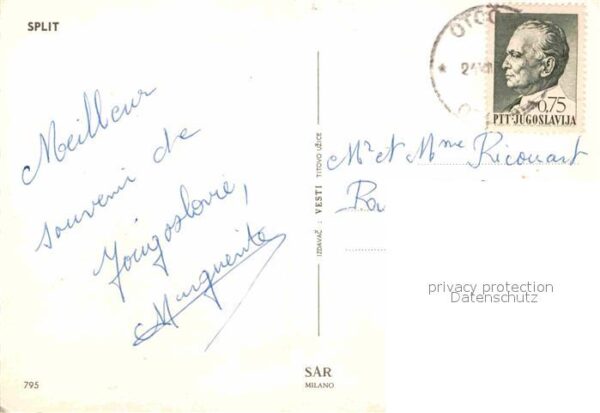 SPLIT
Meilleur
souvenir de
Yougoslavie,
Marguerite
795
IZDAVAČ : VESTI TITOVO UŽICE
SAR
MILANO
0.75
PTT-JUGOSLAVIJA
Mr et Mme Ricouart
privacy protection
Datenschutz